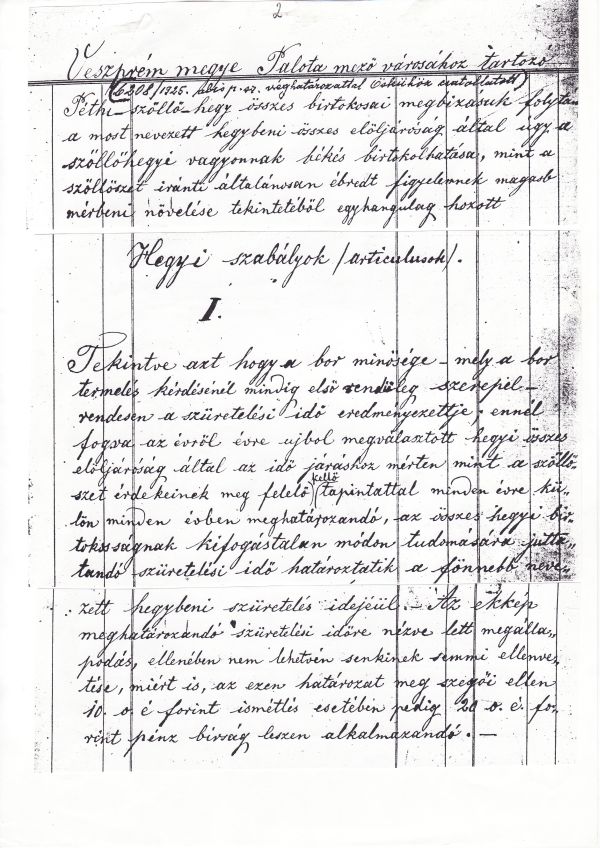 2
Veszprém megye Palota mező városához tartozó
(6208/1925. bkb p. sz. véghatározattal Öskühöz csatoltatott)
Péthi-szőllő-hegy összes birtokosai megbizásuk folytán
a most nevezett hegybeni összes elöljáróság által úgy a
szőllőhegyi vagyonnak békés birtokolhatása, mint a
szőllőszet iránti általánosan ébredt figyelemnek magasb
mérbeni növelése tekintetéből egyhangulag hozott
Hegyi szabályok /articulusok/.
I.
Tekintve azt hogy a bor minősége – mely a bor
termelés kérdésénél mindig első rendüleg szerepel –
rendesen a szüretelési idő eredményezettje; ennél
fogva az évről évre ujbol megválasztott hegyi összes
elöljáróság által az idő járáshoz mérten mint a szőllő-
szet érdekeinek meg felelő kellő tapintattal minden évre kü-
lön minden évben meghatározandó, az összes hegyi bir-
tokosságnak kifogástalan módon tudomására jutta-
tandó szüretelési idő határoztatik a fönnebb neve-
zett hegybeni szüretelés idejéül. – Az ekkép
meghatározandó szüretelési időre nézve lett megálla-
podás, ellenében nem lehetvén senkinek semmi ellenve-
tése, miért is, az ezen határozat meg szegői ellen
10. o. é forint ismétlés esetében pedig 20 o. é. fo-
rint pénz birság leszen alkalmazandó. –